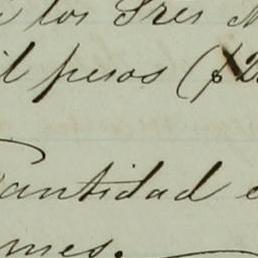 los Sres
il pesos ($2
Cantidad
mes.